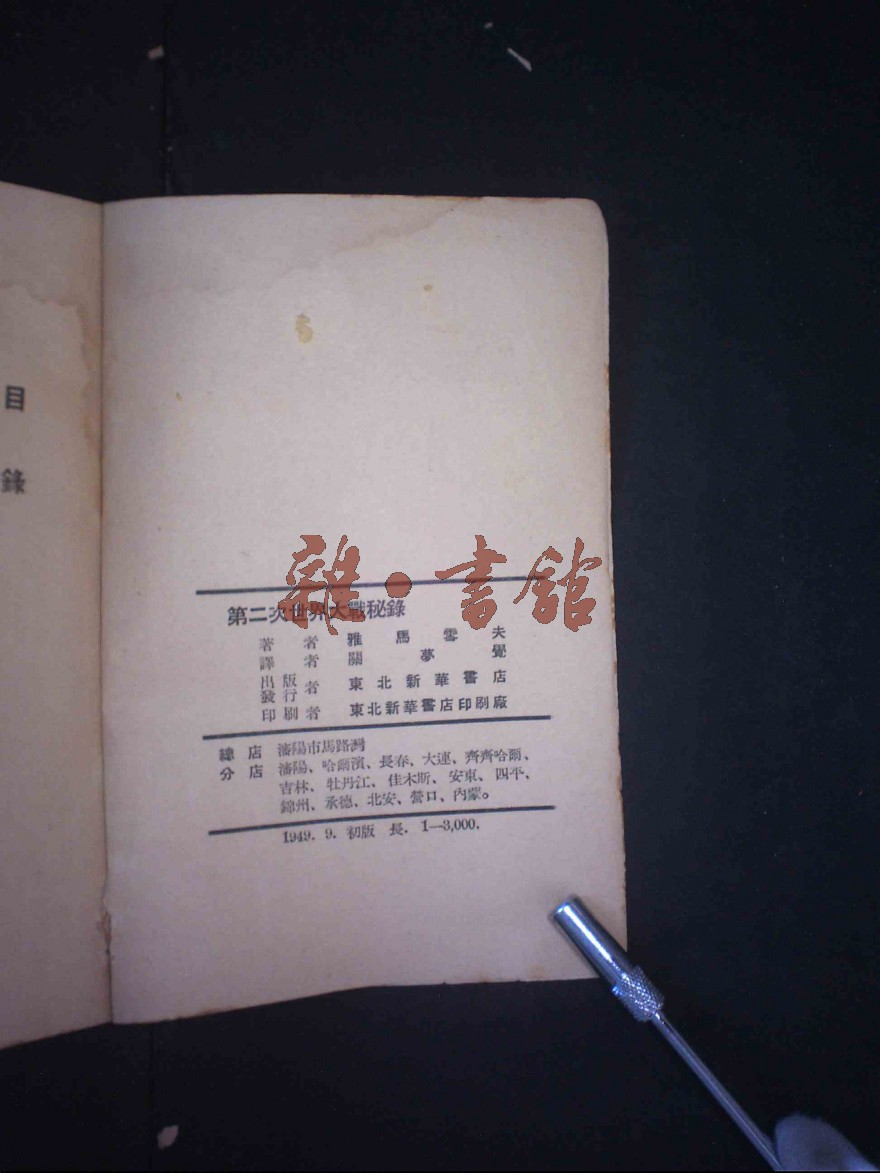 目錄
雜·書館
第二次世界大戰秘錄
著者 雅馬雪夫
譯者 關夢覺
出版發行者 東北新華書店
印刷者 東北新華書店印刷廠
總店 瀋陽市馬路灣
分店 瀋陽、哈爾濱、長春、大連、齊齊哈爾、
吉林、牡丹江、佳木斯、安東、四平、
錦州、承德、北安、營口、內蒙。
1949. 9. 初版 長. 1—3,000.